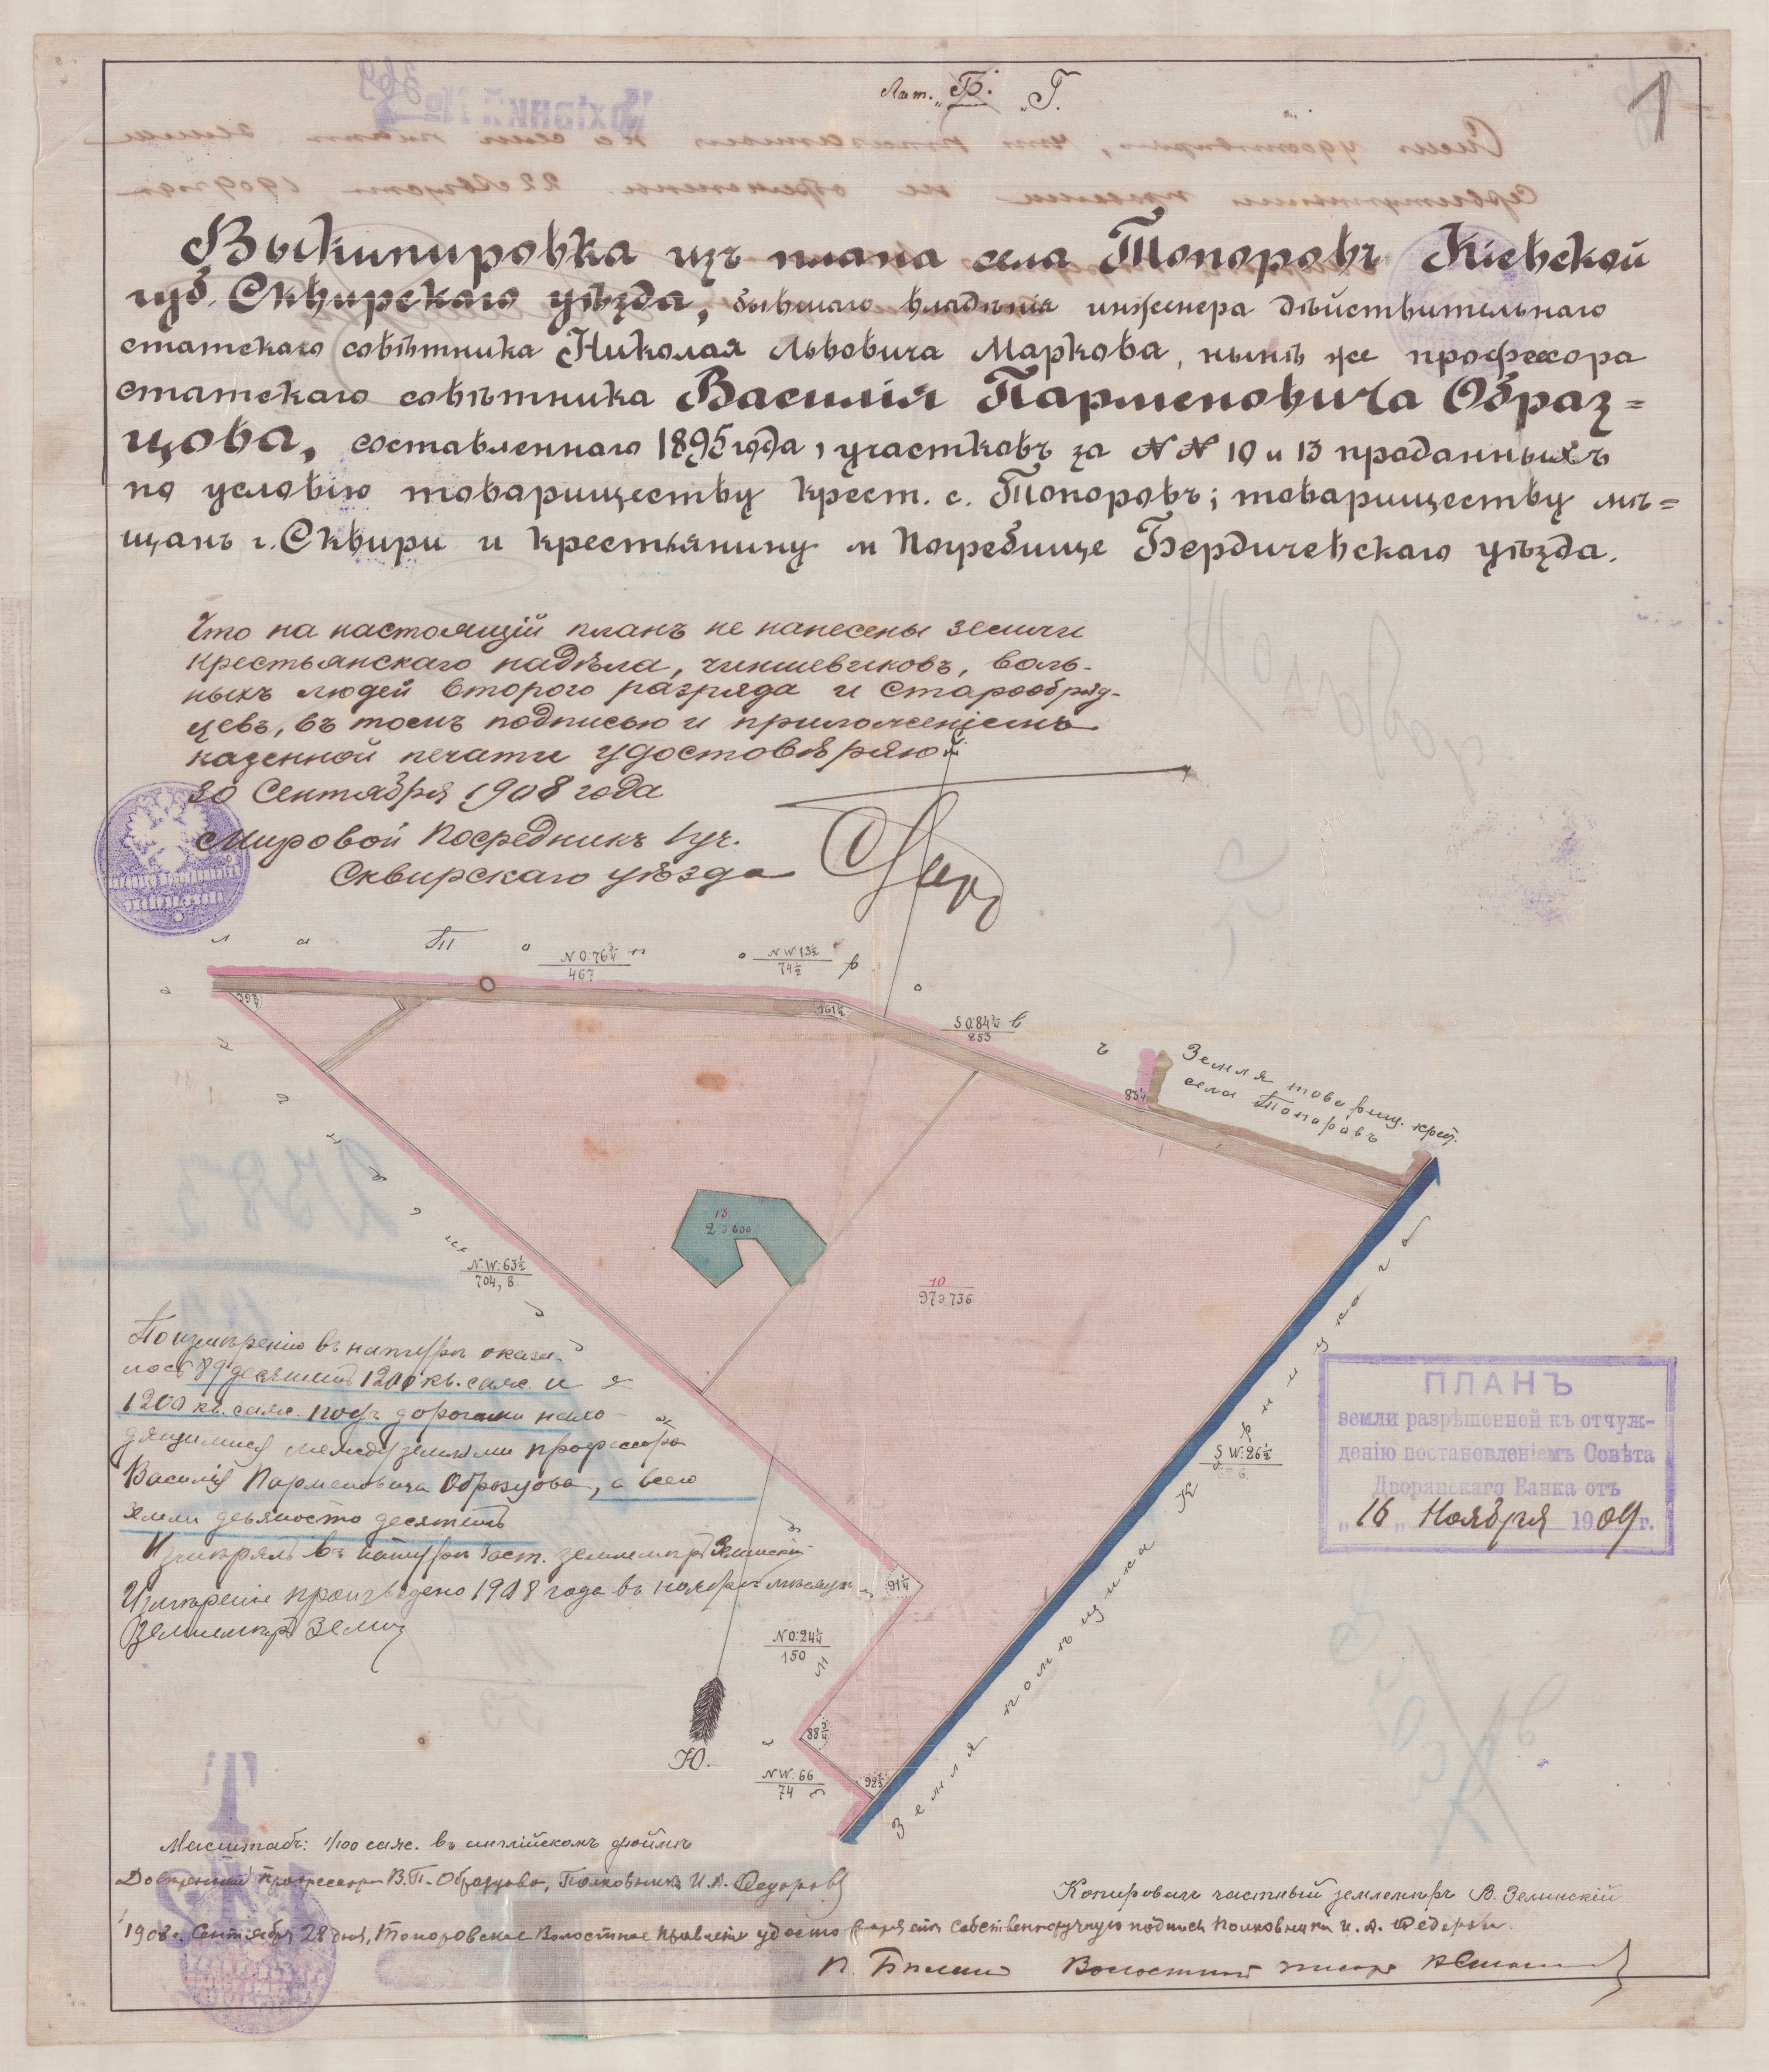 Лит. „Б.“ „Г.
1
Выкипировка изъ плана села Топоровъ Кіевской
губ. Сквирскаго уѣзда, бывшаго владѣнія инженера дѣйствительнаго
статскаго совѣтника Николая Львовича Маркова, нынѣ же професора
статскаго совѣтника Василія Парменовича Образ=
цова, составленнаго 1895 года, участковъ за №№ 10 и 13 проданныхъ
по условію товариществу крест. с. Топоровъ; товариществу мѣ=
щанъ г. Сквири и крестьянину м Погребище Бердичевскаго уѣзда.
Что на настоящій планъ не нанесены земли
крестьянскаго надѣла, чиншевиковъ, воль-
ныхъ людей второго разряда и старообряд-
цевъ, въ томъ подписью и приложеніемъ
казенной печати удостовѣряю
30 Сентября 1908 года
Мировой Посредникъ 1 уч.
Сквирскаго уѣзда
Т о п о р о в ъ
NO:76¾
467
NW:13½
74½
SO:84¾
253
39¾
161½
83¼
Земля товарищ. крест.
села Топоровъ
13
2 э 600
10
97 э 736
N.W:63½
704,8
SW:26½
По измѣренію въ натурѣ оказа-
лось 89 десятинъ 1200 кв. саж. и
1200 кв. саж. подъ дорогами нахо-
дящимися между землями профессора
Василія Парменовича Образцова, а всего
земли девяносто десятинъ
Измѣрялъ въ натурѣ част. землемѣръ Зелинскій
Измѣреніе произведено 1908 года въ ноябрѣ мѣсяцѣ
Землемѣръ
ПЛАНЪ
земли разрѣшенной къ отчуж-
денію постановленіемъ Совѣта
Дворянскаго Банка отъ
„16„ Ноября 1909 г.
91¼
NO:24¼
150
88¾
NW:66
74
92½
Ю.
Земля помѣщика
Масштабъ: 1/100 саж. въ англійскомъ дюймѣ
Довѣренный Профессора В.П. Образцова, Полковникъ И.А. Федоровъ
Копировалъ частный землемѣръ В. Зелинскій
1908 г. Сентября 28 дня, Топоровское Волостное Правленіе удостовѣряетъ собственноручную подпись полковника И. А. Федорова.
Волостной писарь